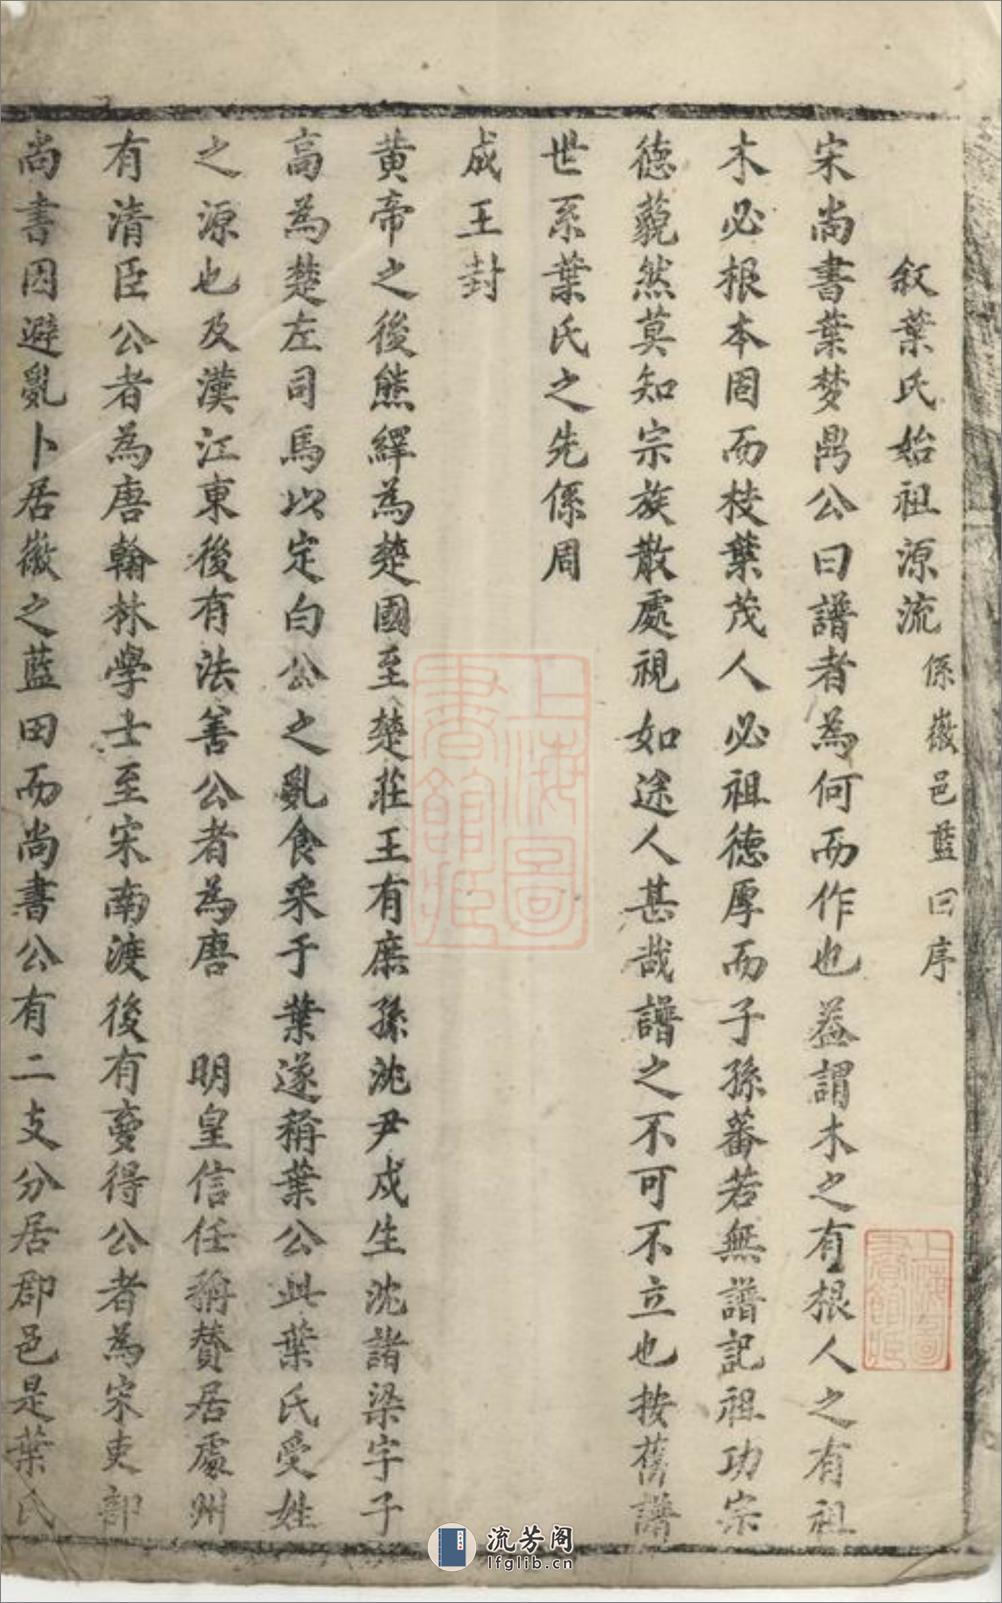 叙葉氏始祖源流 係嶶邑藍田序
宋尚書葉梦鼎公曰譜者為何而作也葢謂木之有根人之有祖
木必根本固而枝葉茂人必祖德厚而子孫蕃若無譜記祖功宗
德藐然莫知宗族散處視如途人甚哉譜之不可不立也按舊譜
世系葉氏之先係周
成王封
黄帝之後熊繹為楚國至楚莊王有庶孫沈尹戍生沈諸梁字子
高為楚左司馬以定白公之亂食采于葉遂稱葉公此葉氏受姓
之源也及漢江東後有法善公者為唐 明皇信任稱賛居處州
有清臣公者為唐翰林學士至宋南渡後有夢得公者為宋吏部
尚書因避亂卜居嶶之藍田而尚書公有二支分居郡邑是葉氏
上海圖書館藏
上海圖書館藏
流芳阁
lfglib.cn